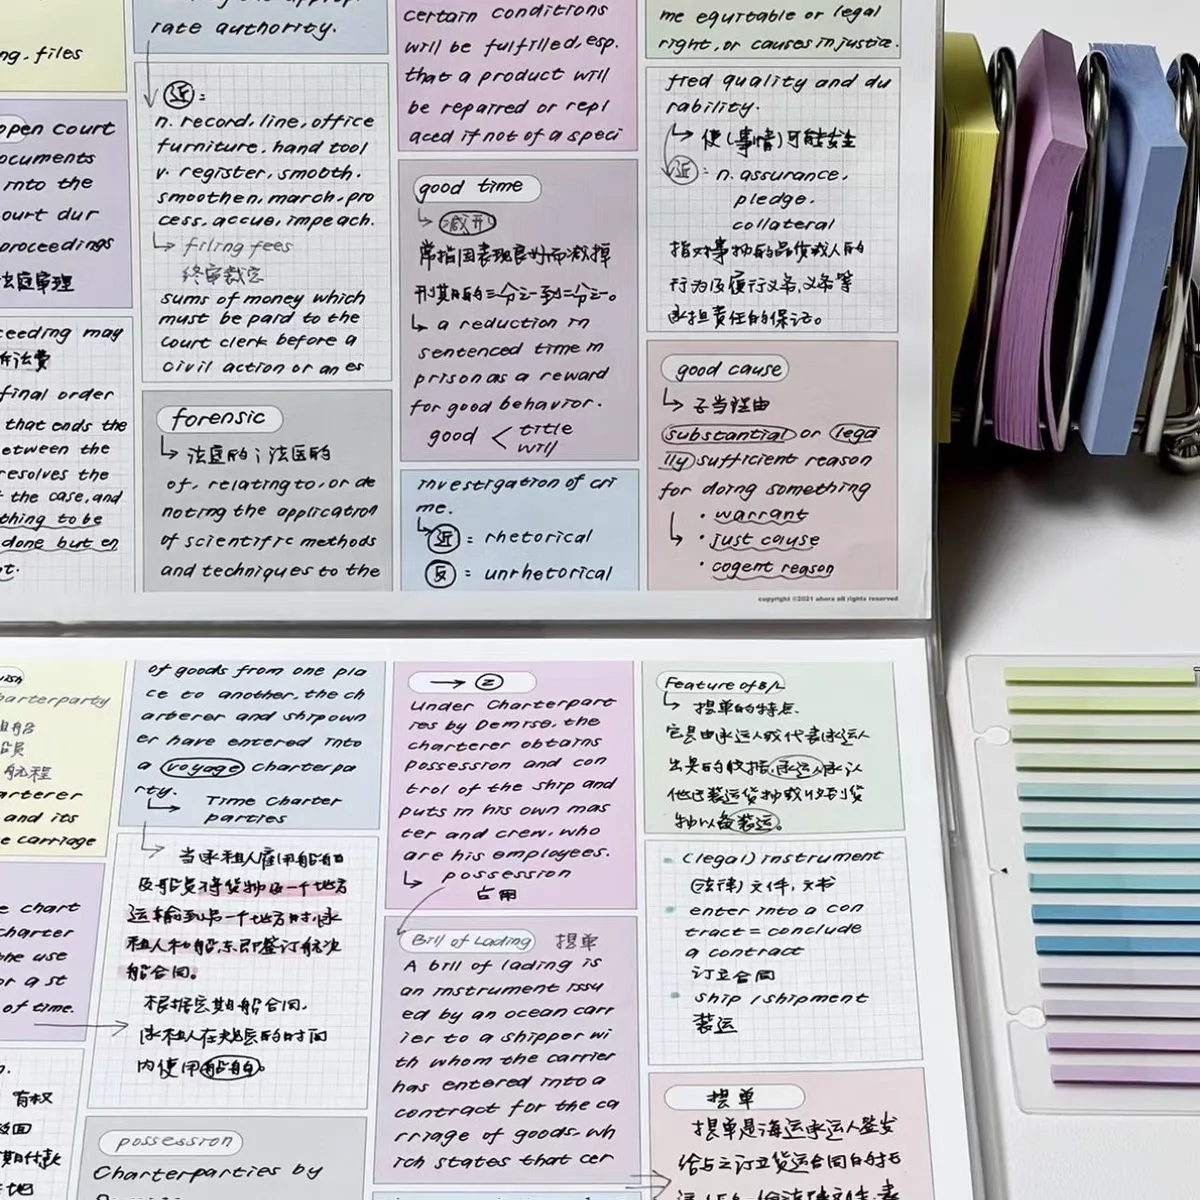 ng, files
open court
ocuments
into the
ourt dur
proceedings
法庭审理
ceeding may
诉讼费
final order
that ends the
etween the
resolves the
t the case, and
thing to be
done but en
t.
rate authority.
近:
n. record, line, office
furniture, hand tool
v. register, smooth.
smoothen, march, pro
cess, accue, impeach.
filing fees
终审裁定
sums of money which
must be paid to the
court clerk before a
civil action or an es
forensic
法庭的;法医的
of, relating to, or de
noting the application
of scientific methods
and techniques to the
certain conditions
will be fulfilled, esp.
that a product will
be repaired or repl
aced if not of a speci
good time
减刑
常指因表现良好而减掉
刑期的三分之一到二分之一。
a reduction in
sentenced time in
prison as a reward
for good behavior.
good < title
will
investigation of cri
me.
近: rhetorical
反: unrhetorical
me equitable or legal
right, or causes injustice.
fied quality and du
rability.
使(事情)可能发生
近: n. assurance,
pledge,
collateral
指对事物的品质或人的
行为及履行义务,义务等
承担责任的保证。
good cause
正当理由
substantial or lega
lly sufficient reason
for doing something
· warrant
· just cause
· cogent reason
copyright ©2021 ahora all rights reserved
harterparty
租船
船员
航程
arterer
and its
e carriage
e chart
charter
the use
or a st
of time.
有权
期付款
of goods from one pla
ce to another, the ch
arterer and shipown
er have entered into
a voyage charterpa
rty.
Time Charter
parties
当承租人雇用船舶
及船员将货物从一个地方
运输到另一个地方时,承
租人和船东即签订航次
船合同。
根据定期船合同,
承租人在规定的时间
内使用船舶。
possession
Charterparties by
→ ②
Under Charterpart
ies by Demise, the
charterer obtains
possession and con
trol of the ship and
puts in his own mas
ter and crew, who
are his employees.
possession
占用
Bill of Lading 提单
A bill of lading is
an instrument issu
ed by an ocean carr
ier to a shipper wi
th whom the carrier
has entered into a
contract for the ca
rriage of goods, wh
ich states that cer
Feature of B/L
提单的特点.
它是由承运人或代表承运人
出具的收据,承运人承认
他已装运货物或收到货
物以备装运。
· (legal) instrument
(法律)文件,文书
· enter into a con
tract = conclude
a contract
订立合同
· ship / shipment
装运
提单
提单是海运承运人签发
给与之订立货运合同的托